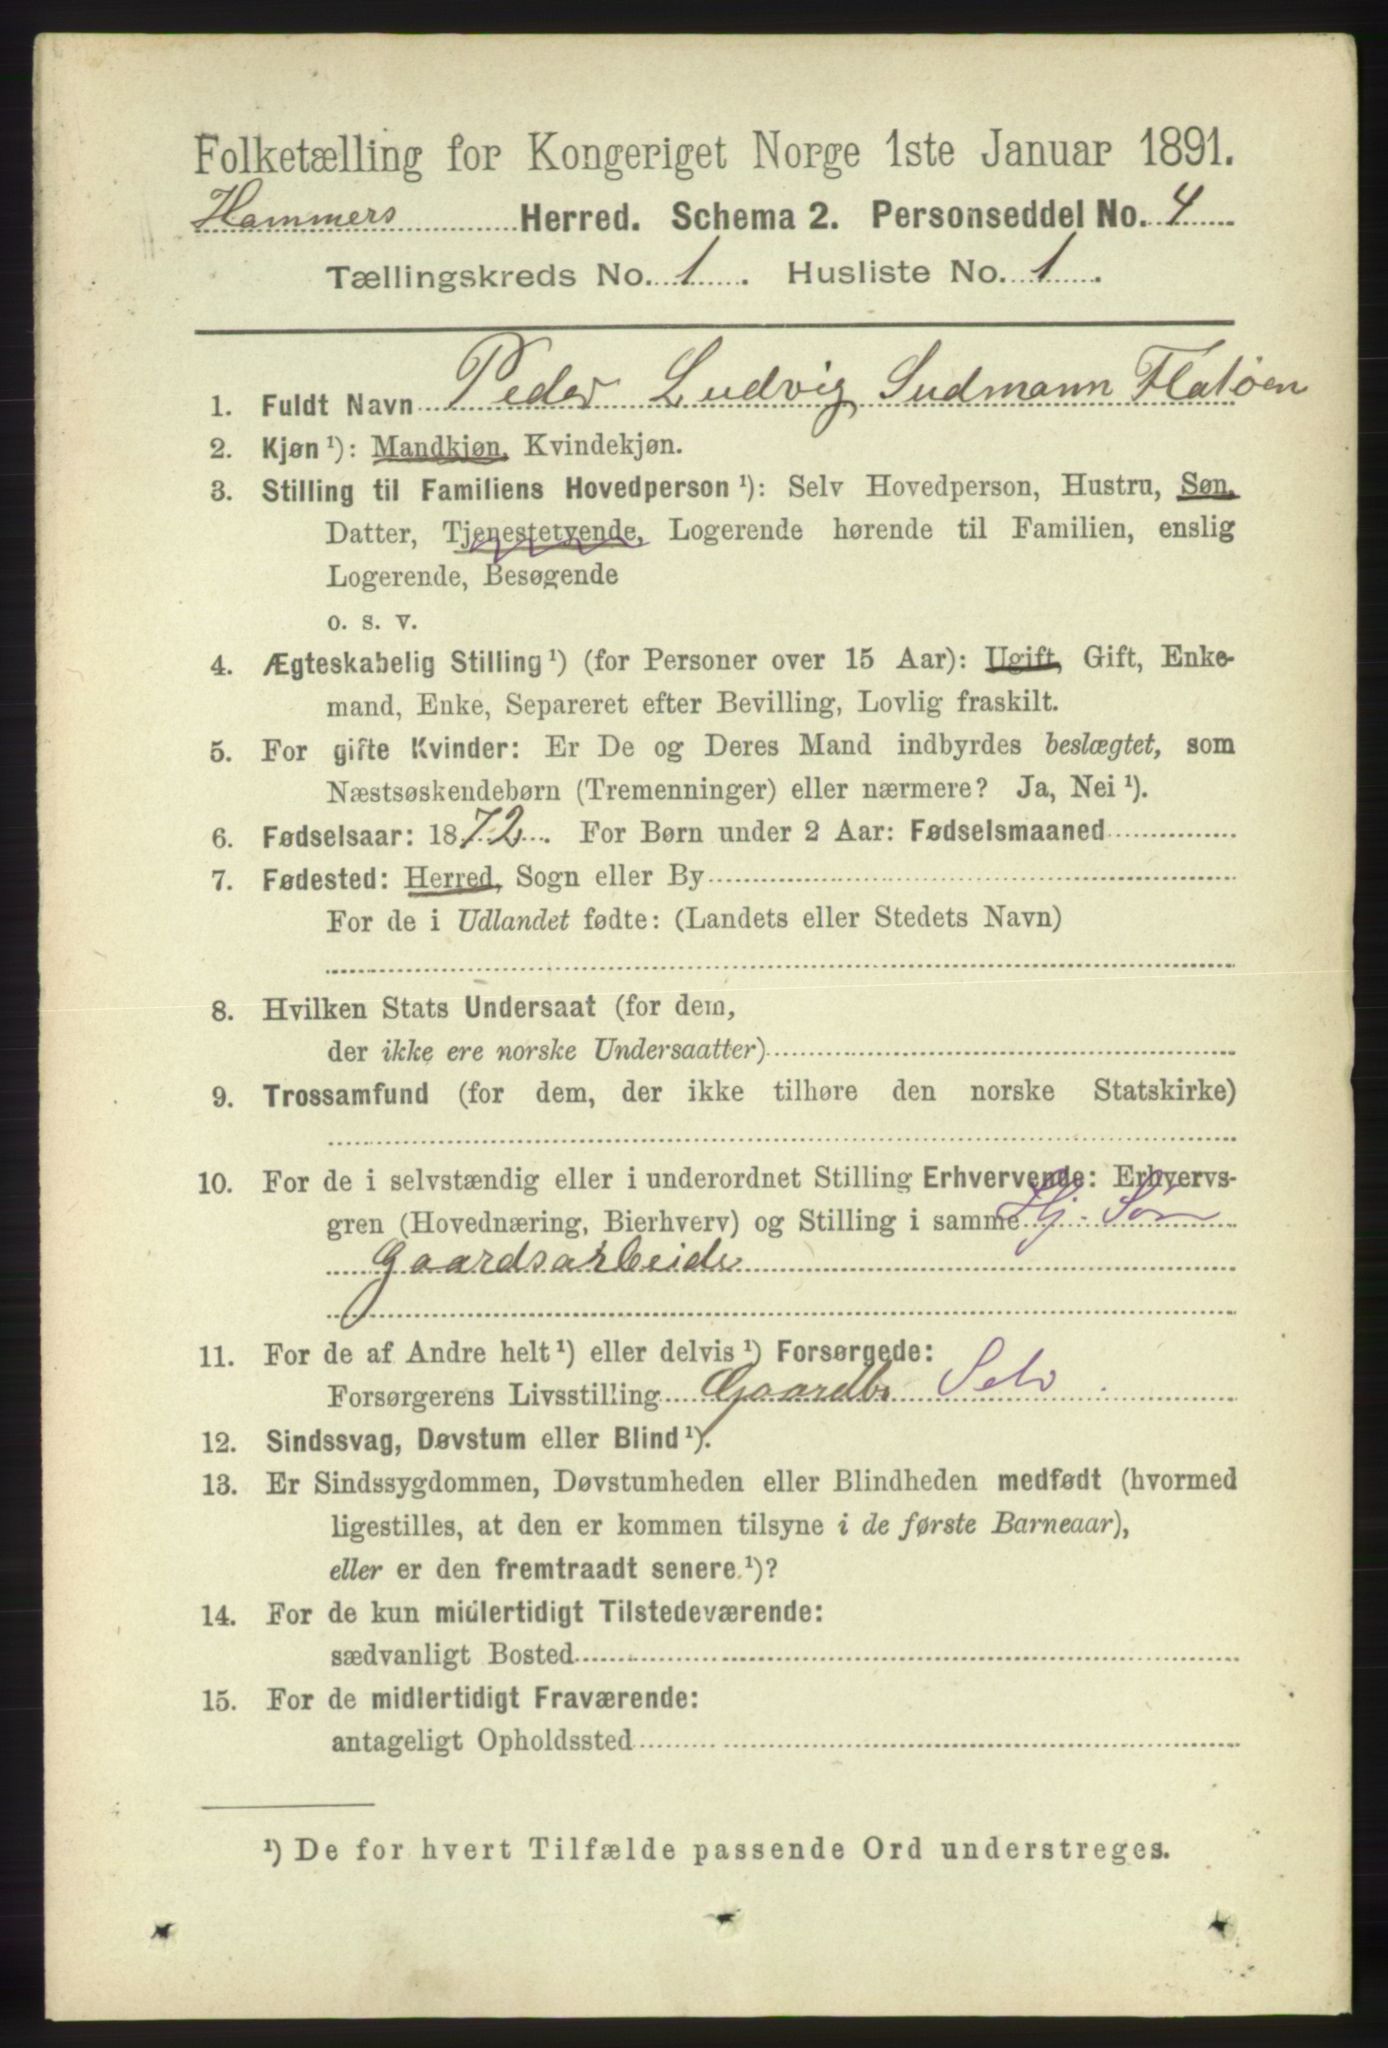 Folketælling for Kongeriget Norge 1ste Januar 1891.
Hammers Herred. Schema 2. Personseddel No. 4
Tællingskreds No. 1. Husliste No. 1.
1. Fuldt Navn Peder Ludvig Sudmann Flatøen
2. Kjøn ¹): Mandkjøn, Kvindekjøn.
3. Stilling til Familiens Hovedperson ¹): Selv Hovedperson, Hustru, Søn,
Datter, Tjenestetyende, Logerende hørende til Familien, enslig
Logerende, Besøgende
o. s. v.
4. Ægteskabelig Stilling ¹) (for Personer over 15 Aar): Ugift, Gift, Enke-
mand, Enke, Separeret efter Bevilling, Lovlig fraskilt.
5. For gifte Kvinder: Er De og Deres Mand indbyrdes beslægtet, som
Næstsøskendebørn (Tremenninger) eller nærmere? Ja, Nei ¹).
6. Fødselsaar: 1872. For Børn under 2 Aar: Fødselsmaaned
7. Fødested: Herred, Sogn eller By
For de i Udlandet fødte: (Landets eller Stedets Navn)
8. Hvilken Stats Undersaat (for dem,
der ikke ere norske Undersaatter)
9. Trossamfund (for dem, der ikke tilhøre den norske Statskirke)
10. For de i selvstændig eller i underordnet Stilling Erhvervende: Erhvervs-
gren (Hovednæring, Bierhverv) og Stilling i samme Hj. Søn
Gaardsarbeide
11. For de af Andre helt ¹) eller delvis ¹) Forsørgede:
Forsørgerens Livsstilling Gaardbr Selv
12. Sindssvag, Døvstum eller Blind ¹).
13. Er Sindssygdommen, Døvstumheden eller Blindheden medfødt (hvormed
ligestilles, at den er kommen tilsyne i de første Barneaar),
eller er den fremtraadt senere ¹)?
14. For de kun midlertidigt Tilstedeværende:
sædvanligt Bosted
15. For de midlertidigt Fraværende:
antageligt Opholdssted
¹) De for hvert Tilfælde passende Ord understreges.